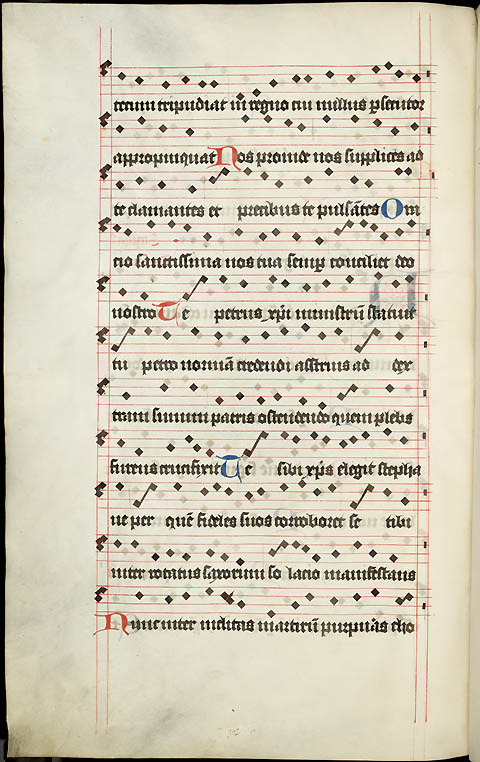 tecum tripudiat in regno cui nullus ꝑsecutor
appropinquat Nos proinde nos supplices ad
te clamantes et precibus te pulsātes Om
cio sanctissima nos tua semꝑ conciliet deo
nostro Te petrus xp̄i ministrū statuit
tu petro normā credendi asstruis ad dex
tram summi patris ostendendo quem plebs
furens crucifixit Te sibi xp̄s elegit stepha
ne per quē fideles suos corroboret se tibi
inter rotatus saxorum so lacio manifestans
Nunc inter inclitas martirū purpuras cho